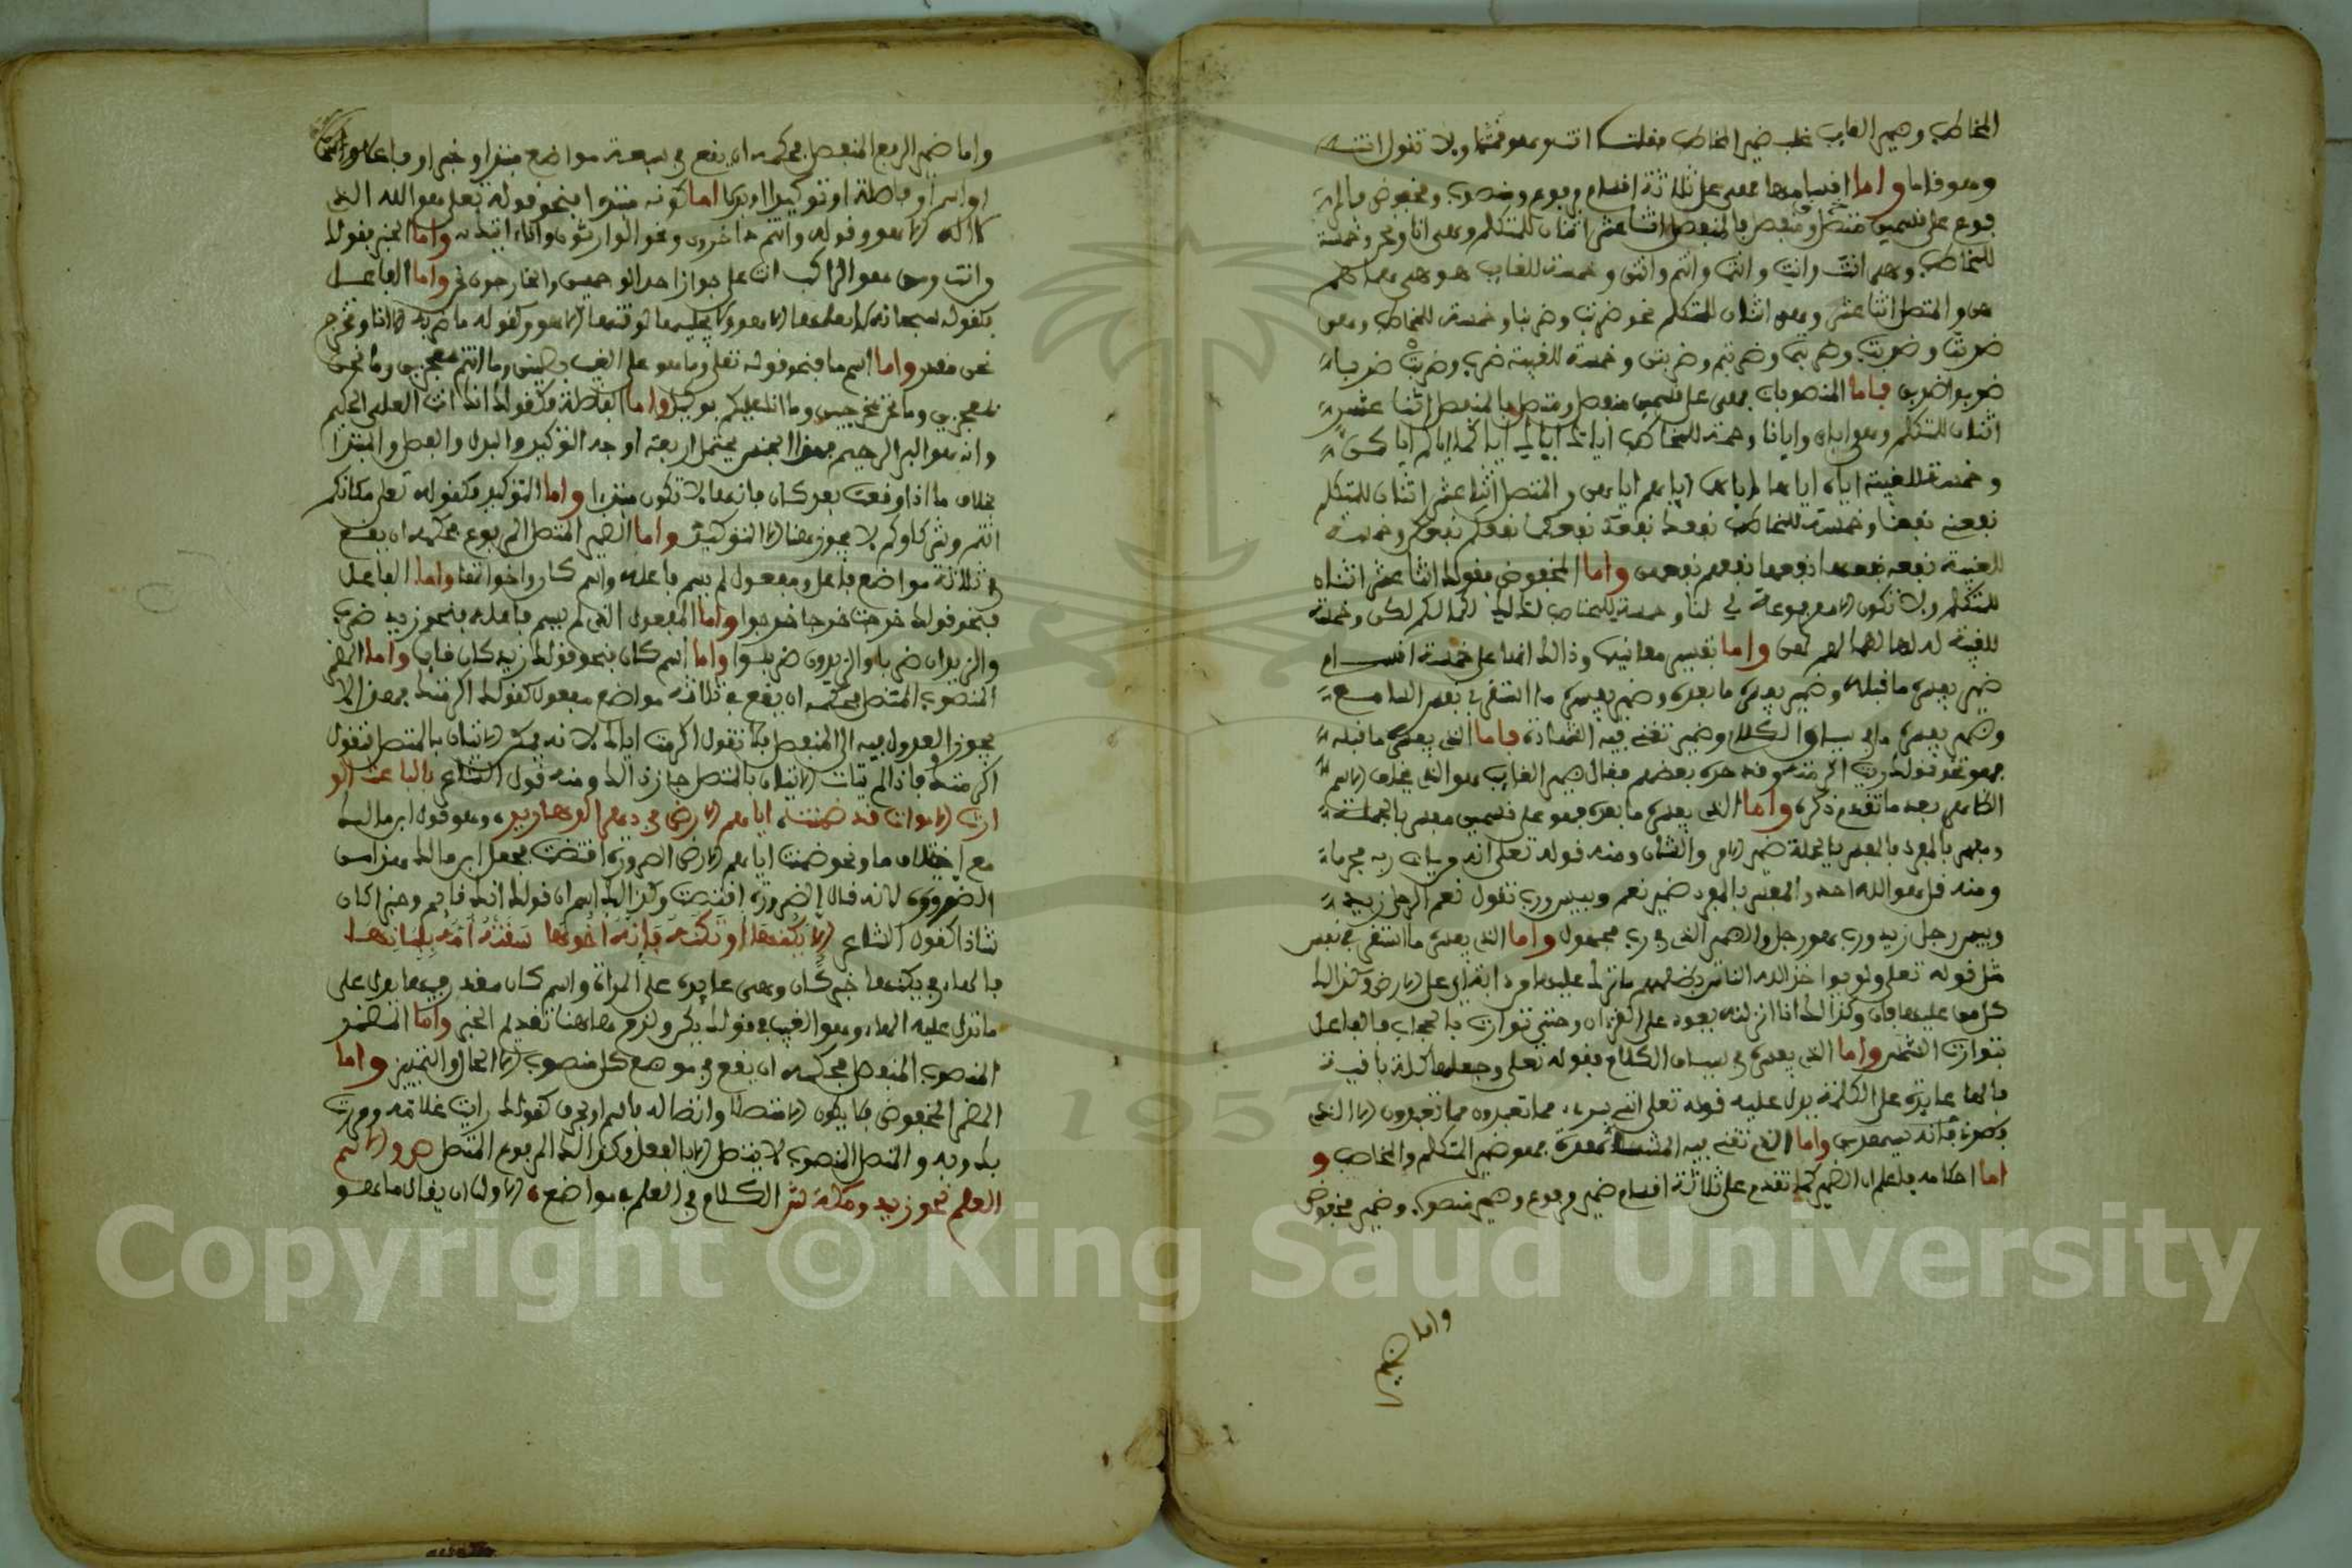 المخاطب وضمير الغايب غلب ضمير المخاطب فقلت انت وهو قمتما ولا تقول انت
وهو قاما واما اقسامها فهي على ثلاثة اقسام مرفوع ومنصوب ومخفوض فالمر
فوع على قسمين متصل ومنفصل فالمنفصل اثنا عشر اثنان للمتكلم وهي انا ونحن وخمسة
للمخاطب وهي انت وانت وانتما وانتم وانتن وخمسة للغايب هو هي هما هم
هن والمتصل اثنا عشر وهي اثنان للمتكلم نحو ضربت وضربنا وخمسة للمخاطب وهي
ضربت وضربت وضربتما وضربتم وضربتن وخمسة للغيبة ضرب وضربت ضربا
ضربوا ضربن فاما المنصوبات فهي على قسمين منفصل ومتصل فالمنفصل اثنا عشر
اثنان للمتكلم وهو اياي وايانا وخمسة للمخاطب اياك اياك اياكما اياكم اياكن
وخمسة للغيبة اياه اياها اياهما اياهم اياهن والمتصل اثنا عشر اثنان للمتكلم
نفعني نفعنا وخمسة للمخاطب نفعك نفعك نفعكما نفعكم نفعكن وخمسة
للغيبة نفعه نفعها نفعهما نفعهم نفعهن واما المخفوض فقولك اثنا عشر اثنان
للمتكلم ولا تكون الا مرفوعة لي لنا وخمسة للمخاطب لك لك لكما لكم لكن وخمسة
للغيبة له لها لهما لهم لهن واما تقسيم معانيها وذالك انها على خمسة اقسام
ضمير يفسره ما قبله وضمير يفسره ما بعده وضمير يفسره ما استقر في نفس السامع
وضمير يفسره ما في سياق الكلام وضمير تغني فيه المشاهدة فاما الذي يفسره ما قبله
فهو نحو قولك زيد اكرمته وقد حده بعضهم فقال ضمير الغايب هو الذي يخلف الاسم
الظاهر بعد ما تقدم ذكره واما الذي يفسره ما بعده فهو على قسمين مفسر بالجملة
ومفسر بالمفرد فالمفسر بالجملة ضمير الامر والشان ومنه قوله تعلى انه من يات ربه مجرما
ومنه قل هو الله احد والمفسر بالمفرد ضمير نعم وبيس ورب تقول نعم الرجل زيد
وبيس رجل زيد ورب هو رجل والضمير الذي في رب مجهول واما الذي يفسره ما استقر في نفس
مثل قوله تعلى ولو يواخذ الله الناس بظلمهم ما ترك عليها من دابة اي على الارض وكذالك
كل من عليها فان وكذالك انا انزلنه يعود على القران وحتى توارت بالحجاب فالفاعل
بتوارت الشمس واما الذي يفسره في سياق الكلام فقوله تعلى وجعلها كلمة باقية
فالهاء عايدة على الكلمة يدل عليه قوله تعلى انني براء مما تعبدون مما تعبدون الا الذي
فطرني فانه سيهدين واما الذي تغني فيه المشاهدة فهو ضمير المتكلم والمخاطب و
اما احكامه فاعلم ان الضمير كما تقدم على ثلاثة اقسام ضمير مرفوع وضمير منصوب وضمير مخفوض
واما ضمير
واما ضمير الرفع المنفصل فحكمه ان يقع في سبعة مواضع مبتدا وخبرا وفاعلا واسم ما
او اسم او فاصلة او توكيدا او بدلا اما كونه مبتدا فنحو قوله تعلى هو الله الذي
لا اله الا هو وقوله وانتم داخرون ونحو الوارثون وانا انبئك واما الخبر فقولك
وانت ومن هو الراكب انت على جواز احد الوجهين والخارجون نحن واما الفاعل
فكقوله سبحانه لا يعلمها الا هو ولا يجليها لوقتها الا هو وكقوله ما ضربه الا انا ونخرج
نحن مفسر واما اسم ما فنحو قوله تعلى وما هو على الغيب بظنين وما انتم بمعجزين وما نحن
بمعجزين وما نحن بمخرجين وما انا عليكم بوكيل واما الفاصلة فكقولك انك انت العليم الحكيم
وانه هو البر الرحيم فهذا الضمير يحتمل اربعة اوجه التوكيد والبدل والفصل والمبتدا
بخلاف ما اذا وقعت بعد كان فانها لا تكون مبتدا واما التوكيد فكقوله تعلى مكانكم
انتم وشركاوكم لا يجوز هنا الا التوكيد واما الضمير المتصل المرفوع فحكمه ان يقع
في ثلاثة مواضع فاعل ومفعول لم يسم فاعله واسم كان واخواتها واما الفاعل
فنحو قولك خرجت خرجا خرجوا واما المفعول الذي لم يسم فاعله فنحو زيد ضرب
والزيدان ضربا والزيدون ضربوا واما اسم كان فنحو قولك زيد كان قايما واما الضمير
المنصوب المتصل فحكمه ان يقع في ثلاثة مواضع مفعولا كقولك اكرمتك فهذا لا
يجوز العدول فيه الى المنفصل فلا تقول اكرمت اياك لانه يمكن الاتيان بالمتصل فتقول
اكرمتك فاذا لم تيات الاتيان بالمتصل جاز ذالك ومنه قول الشاعر بالباعث الو
ارث الاموات قد ضمنت اياهم الارض في دهر الدهارير وهو قول ابن مالك
مع اختلاف ما ونحو ضمنت اياهم الارض الضرورة اقتضت فجعل ابن مالك هذا من
الضرورة لانه قال الضرورة اقتضت وكذالك اسم ان قولك انك قايم وخبر كان
شاذا كقول الشاعر الا يكنها او تكنه فانه اخوها سقته امه بلبانها
فالهاء في يكنها خبر كان وهي عايدة على المراة واسم كان مقدر فيها يدل على
ما تدل عليه الهاء وهو الغيب في قولك بكر ولزم ها هنا تقديم الخبر واما المضمر
المنصوب المنفصل فحكمه ان يقع في موضع كل منصوب الا الحال والتمييز واما
المضمر المخفوض فلا يكون الا متصلا واتصاله باسم او بحرف كقولك رايت غلامه ومررت
بك وبه والمتصل المنصوب لا يتصل الا بالفعل وكذالك المرفوع المتصل ص والاسم
العلم نحو زيد ومكة ش الكلام في العلم في مواضع الاول ان يقال ما هو
Copyright © King Saud University
1957